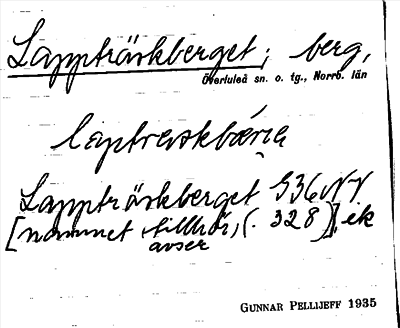 Lappträskberget; berg,
Överluleå sn. o. tg., Norrb. län
laptraskbærjɑ
Lappträskberget G36NV
[namnet tillhör, (. 328)], ek
avser
GUNNAR PELLIJEFF 1935